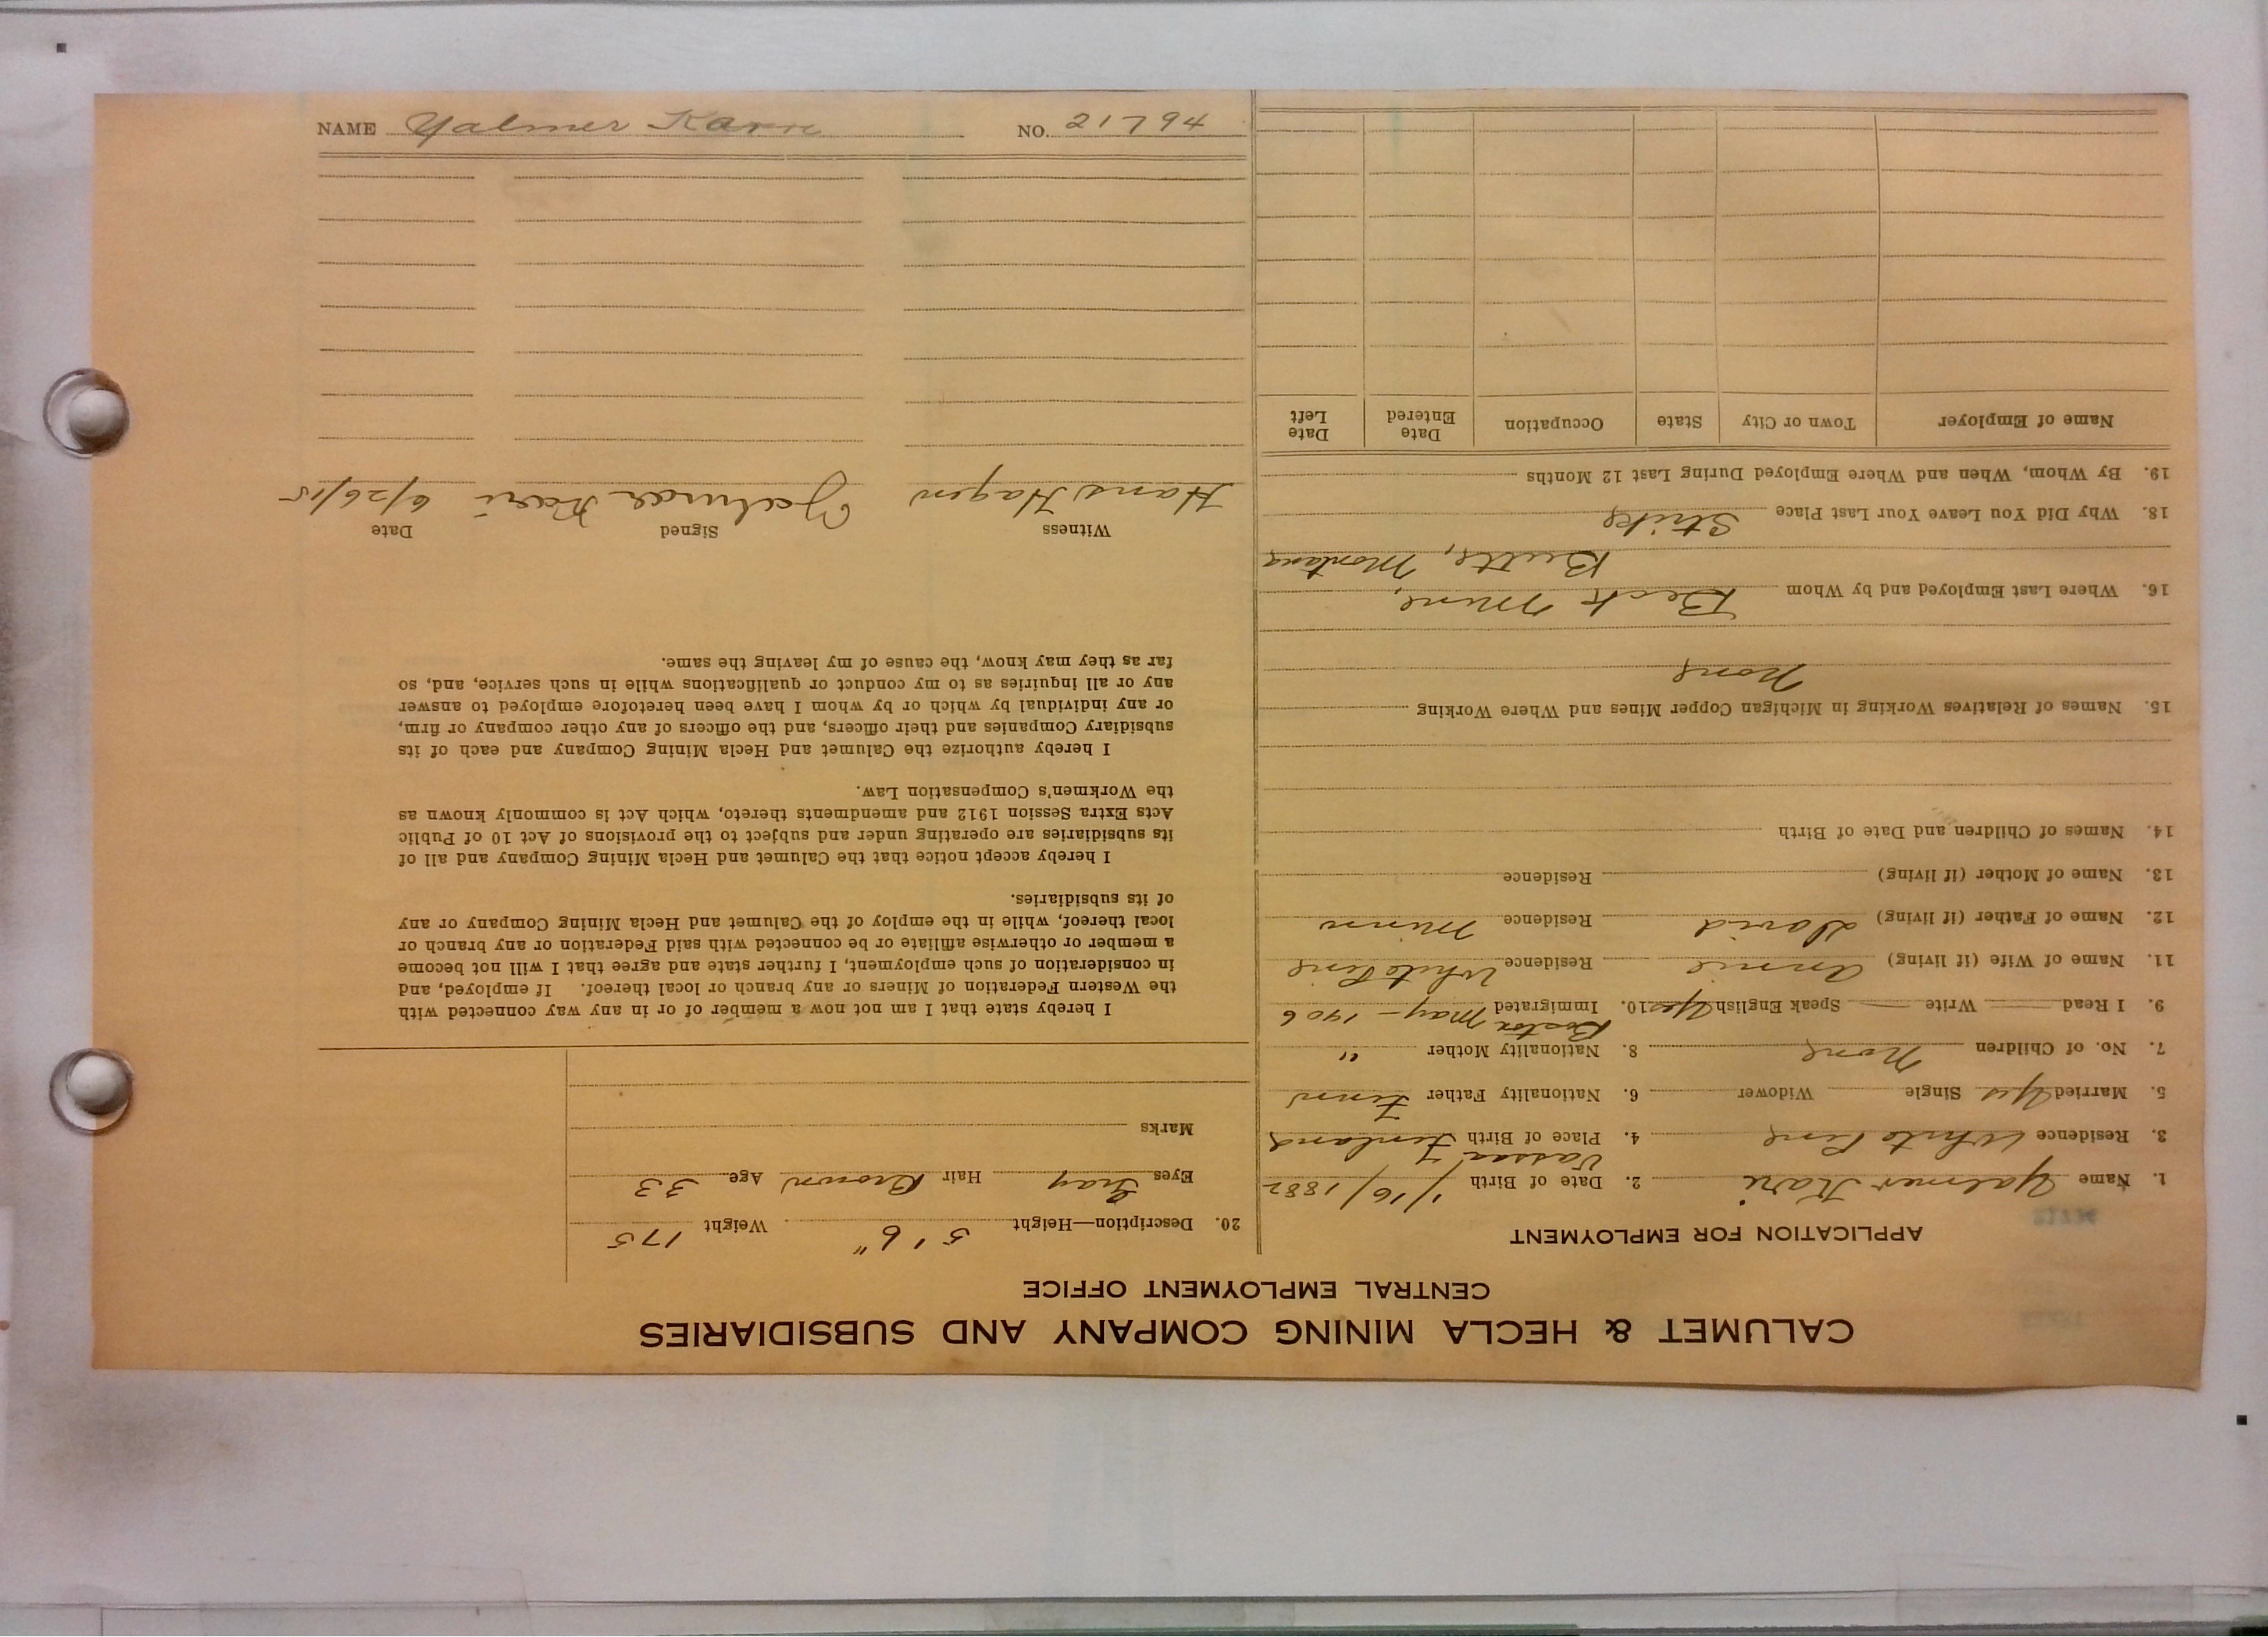 CALUMET & HECLA MINING COMPANY AND SUBSIDIARIES
CENTRAL EMPLOYMENT OFFICE
APPLICATION FOR EMPLOYMENT
1. Name Yalmer Kari 2. Date of Birth 1/16/1882
3. Residence White Pine 4. Place of Birth Vassa, Finland
5. Married Yes Single Widower 6. Nationality Father Finn
7. No. of Children None 8. Nationality Mother "
9. I Read Write Speak English Yes 10. Immigrated Boston May - 1906
11. Name of Wife (if living) Annie Residence White Pine
12. Name of Father (if living) David Residence Minn
13. Name of Mother (if living) Residence
14. Names of Children and Date of Birth
15. Names of Relatives Working in Michigan Copper Mines and Where Working
None
16. Where Last Employed and by Whom Beck Mine,
Butte, Montana
18. Why Did You Leave Your Last Place Strike
19. By Whom, When and Where Employed During Last 12 Months
Name of Employer Town or City State Occupation Date Entered Date Left
20. Description—Height 5' 6" Weight 175
Eyes Gray Hair Brown Age 33
Marks
I hereby state that I am not now a member of or in any way connected with
the Western Federation of Miners or any branch or local thereof. If employed, and
in consideration of such employment, I further state and agree that I will not become
a member or otherwise affiliate or be connected with said Federation or any branch or
local thereof, while in the employ of the Calumet and Hecla Mining Company or any
of its subsidiaries.
I hereby accept notice that the Calumet and Hecla Mining Company and all of
its subsidiaries are operating under and subject to the provisions of Act 10 of Public
Acts Extra Session 1912 and amendments thereto, which Act is commonly known as
the Workmen's Compensation Law.
I hereby authorize the Calumet and Hecla Mining Company and each of its
subsidiary Companies and their officers, and the officers of any other company or firm,
or any individual by which or by whom I have been heretofore employed to answer
any or all inquiries as to my conduct or qualifications while in such service, and, so
far as they may know, the cause of my leaving the same.
Witness Signed Date
Hans Hagen Yalmar Kari 6/26/15
NAME Yalmer Karri NO. 21794